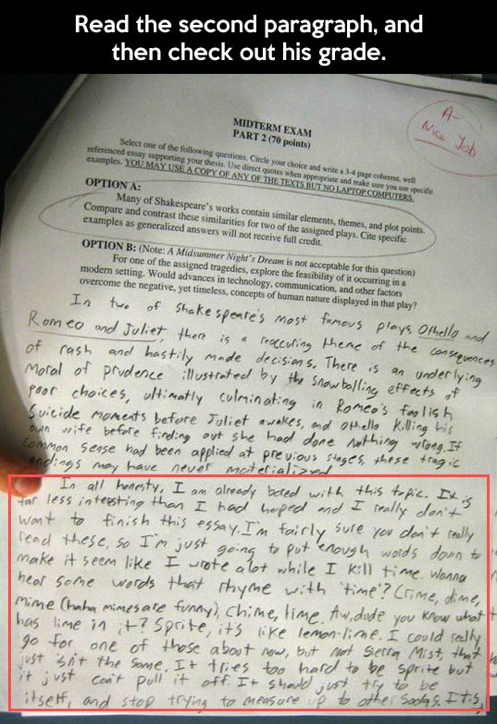 Read the second paragraph, and
then check out his grade.
A-
Nice Job
MIDTERM EXAM
PART 2 (70 points)
Select one of the following questions. Circle your choice and write a 3-4 page coherent, well
referenced essay supporting your thesis. Use direct quotes when appropriate and make sure you use specific
examples. YOU MAY USE A COPY OF ANY OF THE TEXTS BUT NO LAPTOP COMPUTERS.
OPTION A:
Many of Shakespeare's works contain similar elements, themes, and plot points.
Compare and contrast these similarities for two of the assigned plays. Cite specific
examples as generalized answers will not receive full credit.
OPTION B: (Note: A Midsummer Night's Dream is not acceptable for this question)
For one of the assigned tragedies, explore the feasibility of it occurring in a
modern setting. Would advances in technology, communication, and other factors
overcome the negative, yet timeless, concepts of human nature displayed in that play?
In two of Shakespeare's most famous plays, Othello and
Romeo and Juliet, there is a reoccuring theme of the consequences
of rash and hastily made decisions. There is an underlying
moral of prudence illustrated by the snowballing effects of
poor choices, ultimatly culminating in Romeo's foolish
suicide moments before Juliet awakes, and Othello killing his
own wife before finding out she had done nothing wrong. If
common sense had been applied at previous stages, these tragic
endings may have never materialized.
In all honesty, I am already bored with this topic. It is
far less interesting than I had hoped and I really don't
want to finish this essay. I'm fairly sure you don't really
read these, so I'm just going to put enough words down to
make it seem like I wrote alot while I kill time. Wanna
hear some words that rhyme with 'time'? Crime, dime,
mime (haha mimes are funny), chime, lime. Aw, dude you know what
has lime in it? Sprite, it's like lemon-lime. I could really
go for one of those about now, but not Sierra Mist, that
just isn't the same. It tries too hard to be sprite but
it just can't pull it off. It should just try to be
itself, and stop trying to measure up to other sodas. It is,